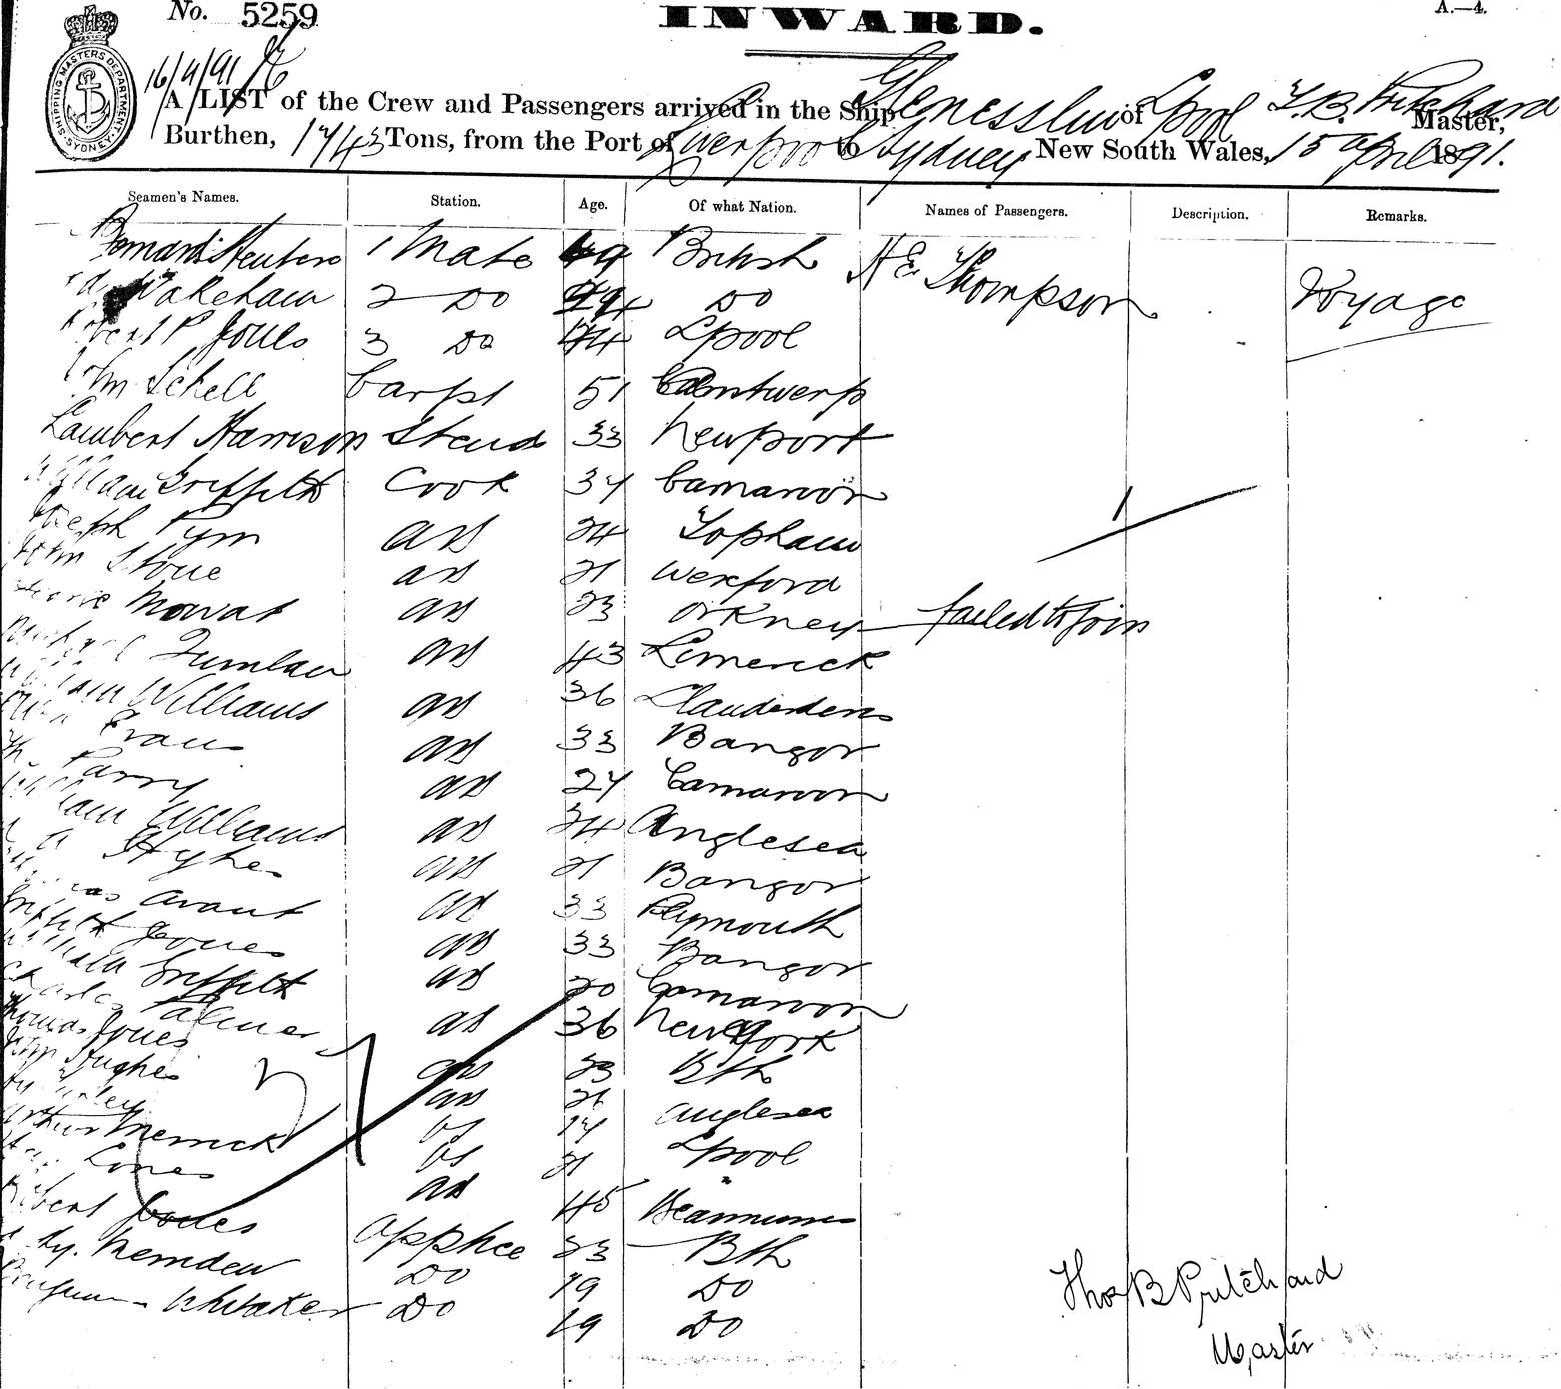 No. 5259
INWARD.
A.—4.
SHIPPING MASTERS DEPARTMENT SYDNEY
16/4/91
A LIST of the Crew and Passengers arrived in the Ship of Lpool T. B. Pritchard Master,
Burthen, 1743 Tons, from the Port of Liverpool to Sydney New South Wales, 15 April 1891.
Seamen's Names. Station. Age. Of what Nation. Names of Passengers. Description. Remarks.
1 Mate 49 British H E Thompson Voyage
Wakeham 2 Do Do
P Jones 3 Do Lpool
Schell Carpt 51 Antwerp
Lambert Harrison Steud 33 Newport
William Griffith Cook 34 Carnarvon
Joseph Pym AB 24 Topham
John Stone AB 21 Wexford
Mowat AB 23 Orkney failed to join
AB 43 Limerick
William Williams AB 36
Evans AB 33 Bangor
Parry AB 24 Carnarvon
William Williams AB 24 Anglesea
AB 21 Bangor
Avant AB 33 Plymouth
Griffith Jones AB 33 Bangor
William Griffith AB 20 Carnarvon
Charles Palmer AB 36 New York
Thomas Jones AB 23 Bth
Hughes AB 21 Anglesea
OS 17 Lpool
Arthur Merrick OS 21 "
AB 45
Robert Apphce 23 Bth
Hy. Do 19 Do
Benjamin Whitaker Do 19 Do
Thos B Pritchard
Master